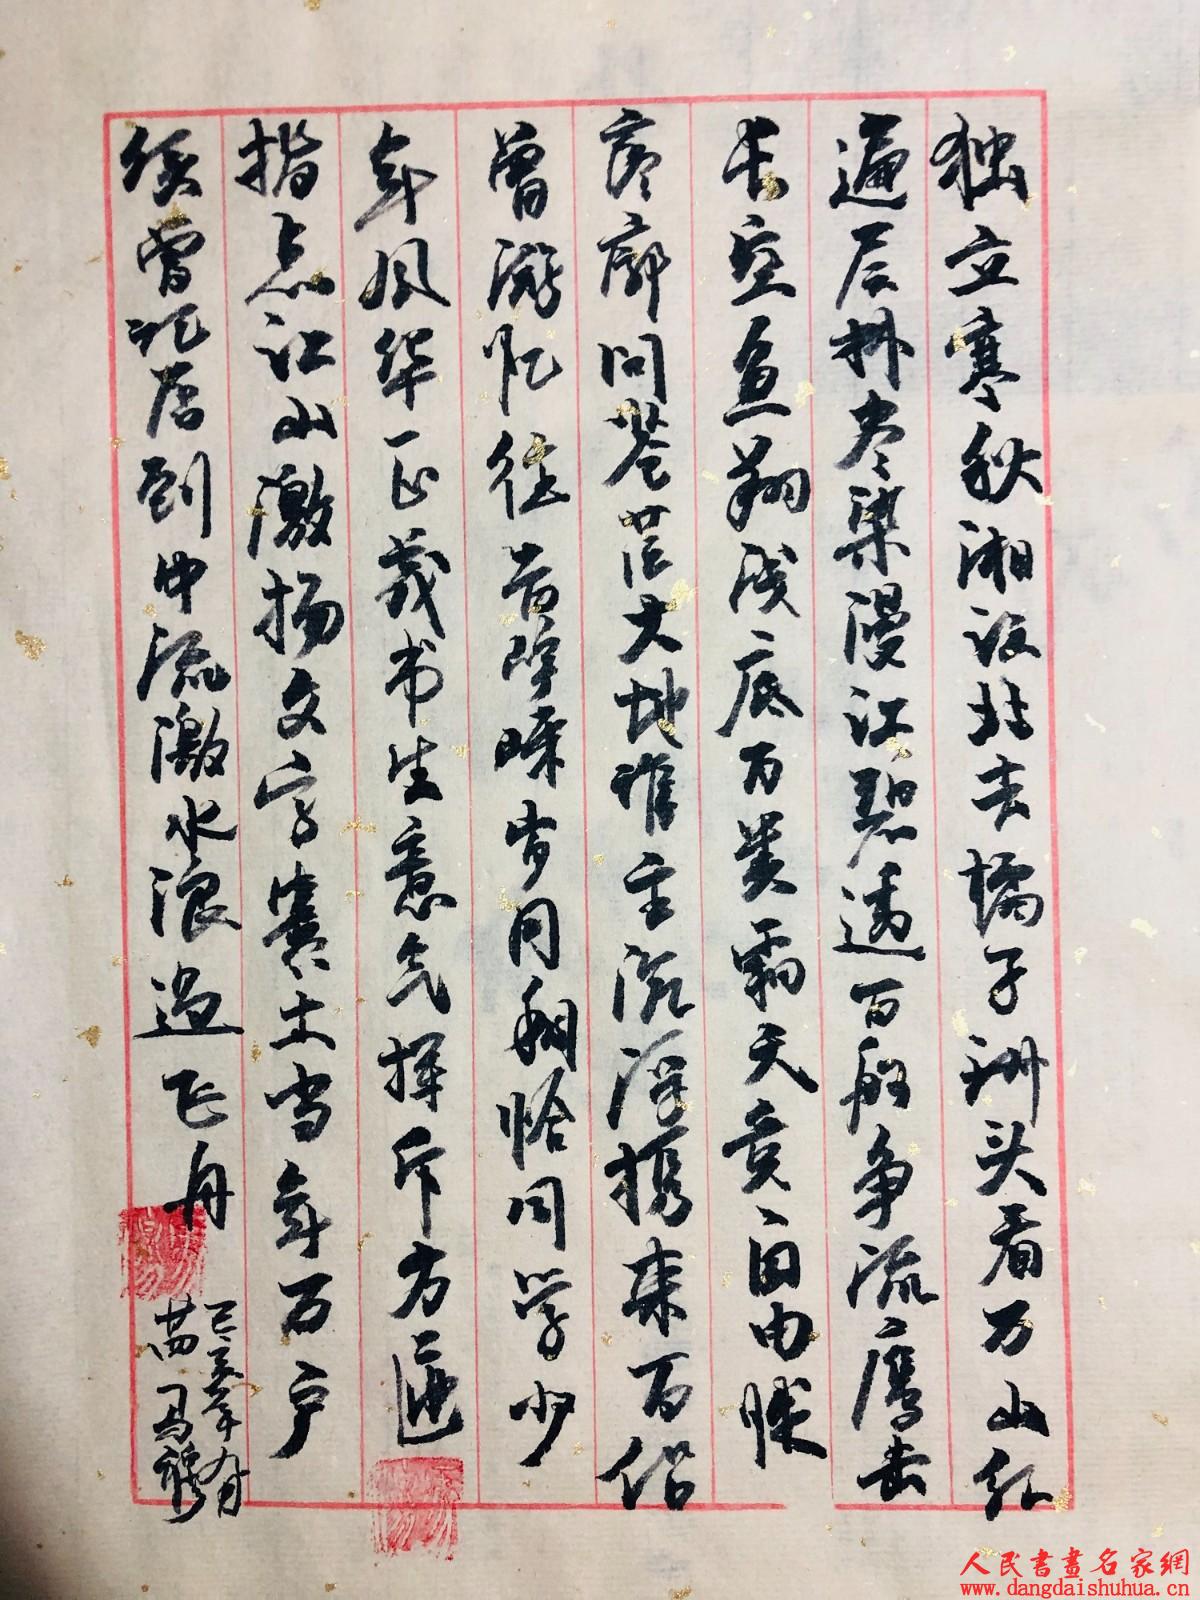 独立寒秋湘江北去橘子洲头看万山红
遍层林尽染漫江碧透百舸争流鹰击
长空鱼翔浅底万类霜天竞自由怅
寥廓问苍茫大地谁主沉浮携来百侣
曾游忆往昔峥嵘岁月稠恰同学少
年风华正茂书生意气挥斥方遒
指点江山激扬文字粪土当年万户
侯曾记否到中流激水浪遏飞舟
人民書畫名家網
www.dangdaishuhua.cn